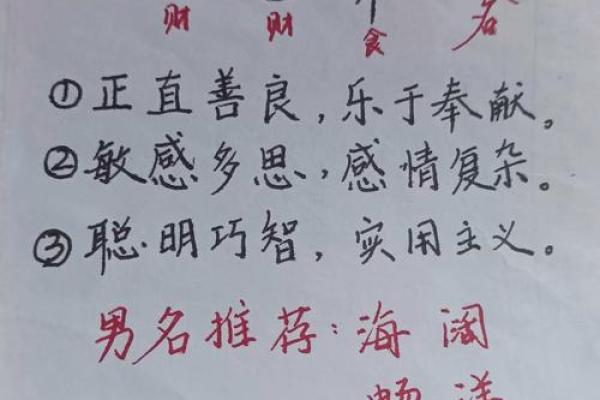 财 财 食 名
①正直善良，乐于奉献。
②敏感多思，感情复杂。
③聪明巧智，实用主义。
男名推荐：海阔
畅洋